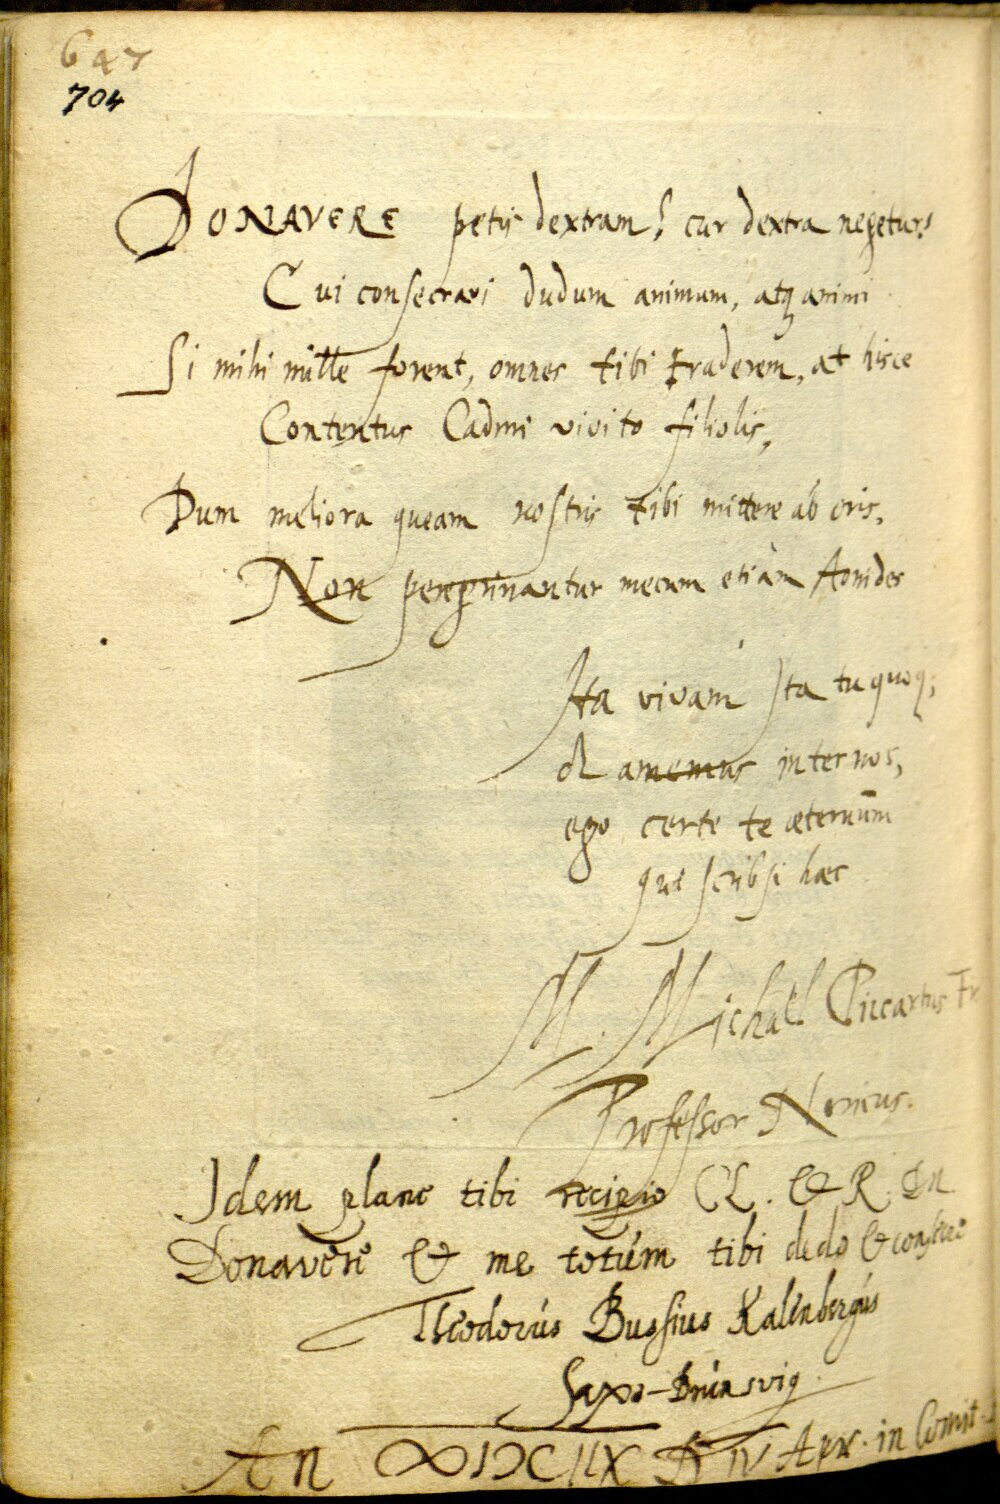 647
704
DONAVERE petis dextram? cur dextra negetur?
Cui consecravi dudum animum, atq animi
Si mihi mille forent, omnes tibi traderem, at hisce
Contentus Cadmi vivito filiolis,
Dum meliora queam nostris tibi mittere ab oris.
Non peregrinantur mecum etiàm Aonides
Ita vivam Ita tu quoq;
& amemus inter nos,
ego certe te æternùm
qui scribsi hæc
M. Michaël Piccartus Fr
Professor Noricus.
Idem plane tibi recipio CL. & R. Dn
Donavere & me totum tibi dedo &
Theodorus Bussius Kalenbergus
Saxo-Brunsvig.
An ∞IↃCIIX D IV Apr. in Comit.